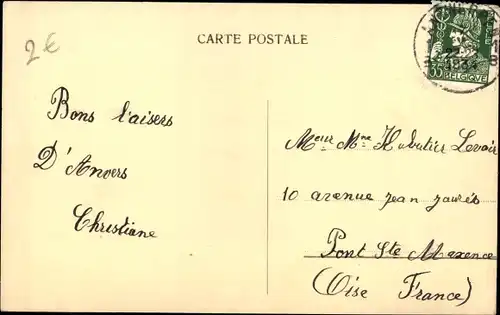 2€
CARTE POSTALE
35
BELGIQUE
1934
Bons baisers
D'Anvers
Christiane
Meur Mme
10 avenue Jean Jaurès
Pont Ste Maxence
(Oise France)